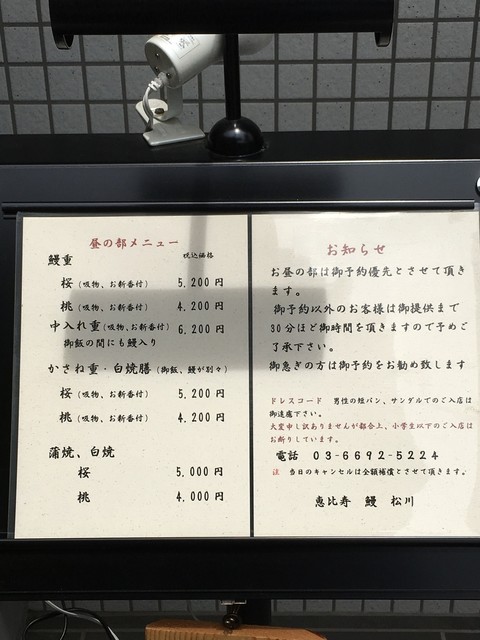 昼の部メニュー
税込価格
鰻重
桜(吸物、お新香付) 5,200円
桃(吸物、お新香付) 4,200円
中入れ重(吸物、お新香付) 6,200円
御飯の間にも鰻入り
かさね重・白焼膳(御飯、鰻が別々)
桜(吸物、お新香付) 5,200円
桃(吸物、お新香付) 4,200円
蒲焼、白焼
桜 5,000円
桃 4,000円
お知らせ
お昼の部は御予約優先とさせて頂き
ます。
御予約以外のお客様は御提供まで
30分ほど御時間を頂きますので予めご
了承下さい。
御急ぎの方は御予約をお勧め致します
ドレスコード 男性の短パン、サンダルでのご入店は
御遠慮下さい。
大変申し訳ありませんが都合上、小学生以下のご入店は
お断りしています。
電話 03-6692-5224
注 当日のキャンセルは全額補償とさせて頂きます。
恵比寿 鰻 松川